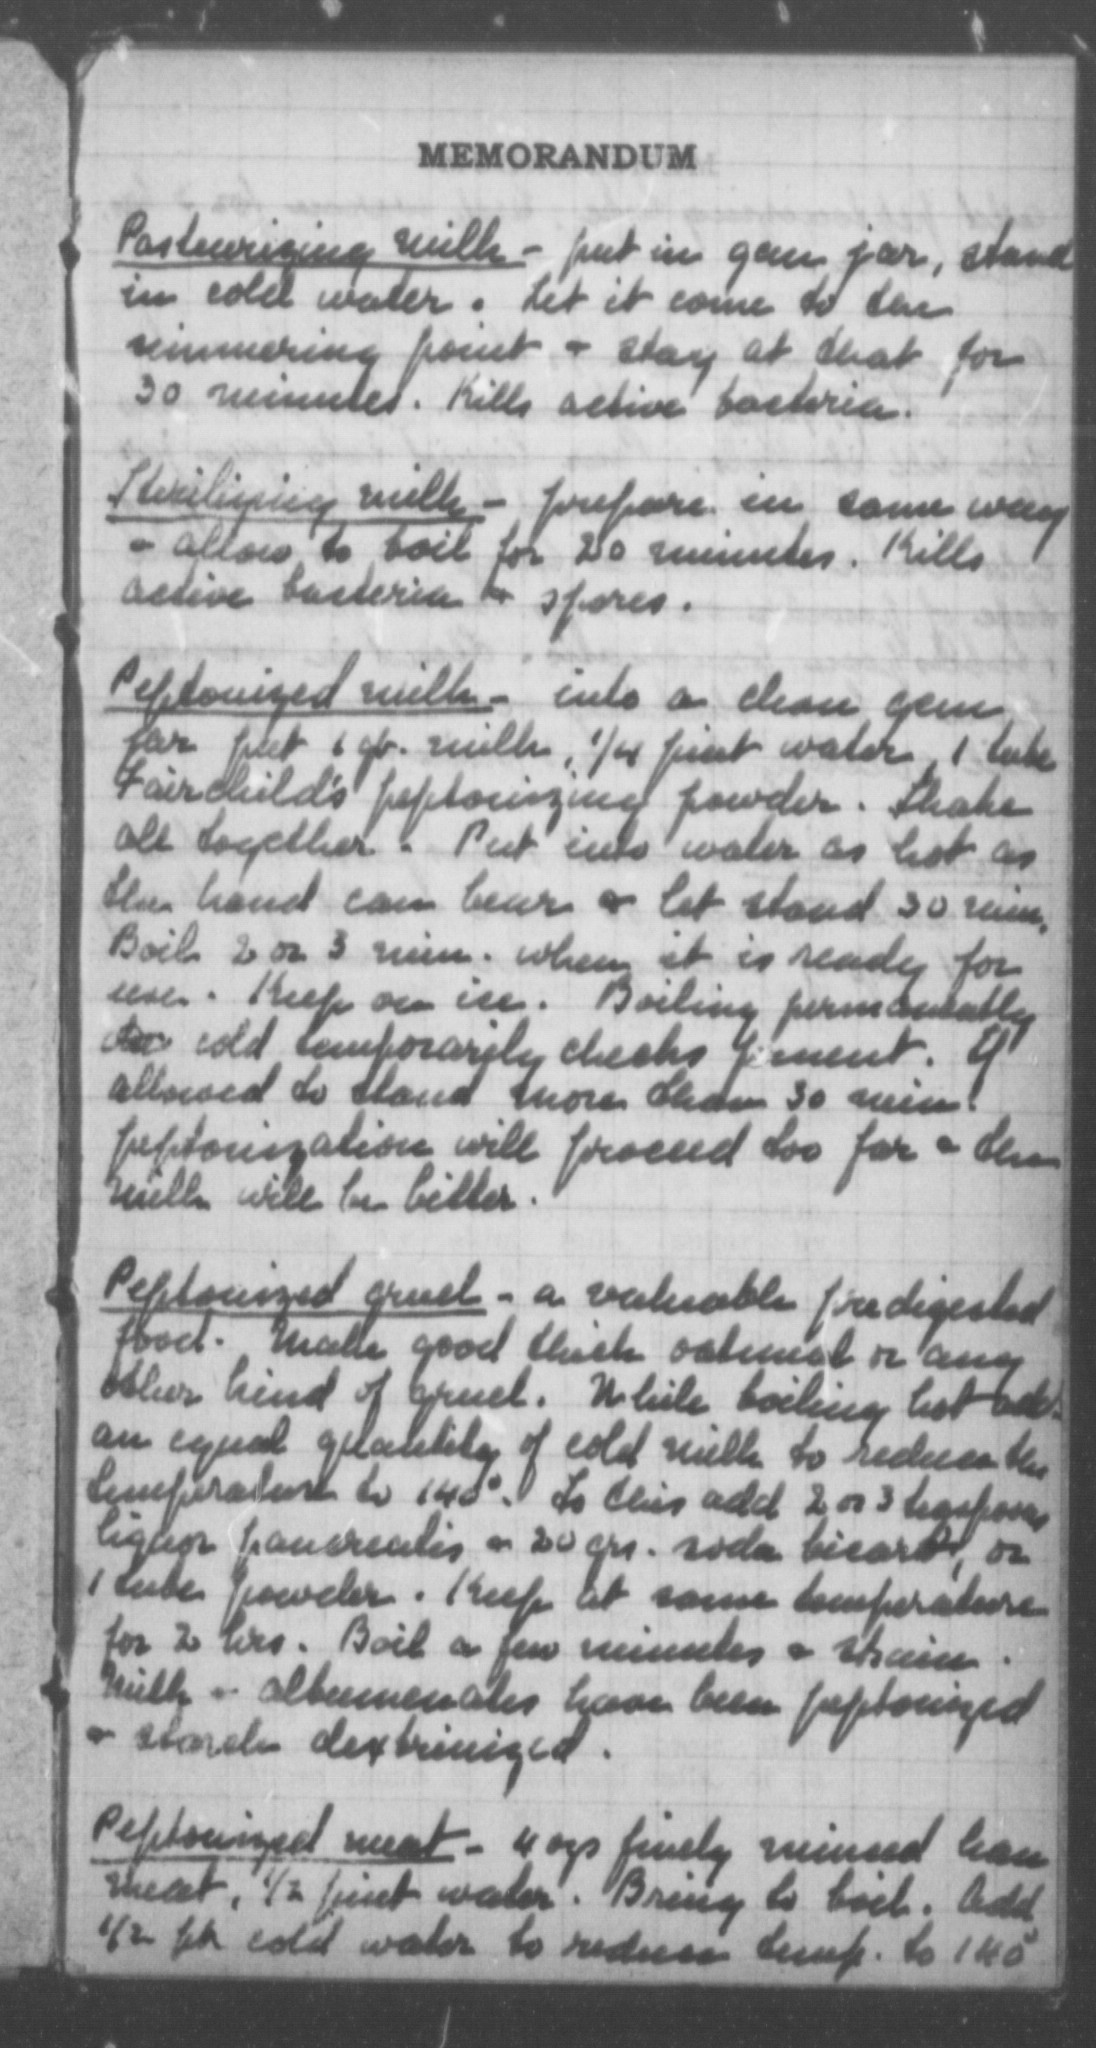 MEMORANDUM
Pasteurizing milk - put in gem jar, stand
in cold water. Let it come to the
simmering point & stay at that for
30 minutes. Kills active bacteria.
Sterilizing milk - prepare in same way
& allow to boil for 20 minutes. Kills
active bacteria & spores.
Peptonized milk - into a clean gem
jar put 1 qt. milk, 1/4 pint water, 1 tube
Fairchild's peptonizing powder. Shake
all together. Put into water as hot as
the hand can bear & let stand 30 min.
Boil 2 or 3 min. when it is ready for
use. Keep on ice. Boiling permanently
cold temporarily checks ferment. If
allowed to stand more than 30 min.
peptonization will proceed too far & the
milk will be bitter.
Peptonized gruel - a valuable predigested
food. Make good thick oatmeal or any
other kind of gruel. While boiling hot add
an equal quantity of cold milk to reduce the
temperature to 140°. To this add 2 or 3 teaspoons
liquor pancreatis & 20 grs. soda bicarb, or
1 tube powder. Keep at same temperature
for 2 hrs. Boil a few minutes & strain.
Milk & albumenates have been peptonized
& starch dextrinized.
Peptonized meat - 4 ozs finely minced lean
meat, 1/2 pint water. Bring to boil. Add
1/2 pt cold water to reduce temp. to 140°